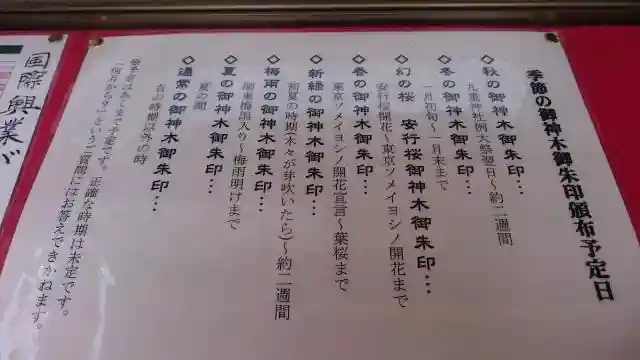 季節の御神木御朱印頒布予定日
◇秋の御神木御朱印…
九重神社例大祭翌日〜約二週間
◇冬の御神木御朱印…
一月初旬〜一月末まで
◇幻の桜 安行桜御神木御朱印…
安行桜開花〜東京ソメイヨシノ開花まで
◇春の御神木御朱印…
東京ソメイヨシノ開花宣言〜葉桜まで
◇新緑の御神木御朱印…
初夏の時期(木々が芽吹いたら)〜約二週間
◇梅雨の御神木御朱印…
関東梅雨入り〜梅雨明けまで
◇夏の御神木御朱印…
夏の間
◇通常の御神木御朱印…
右の時期以外の時
予定はあくまで予定です。正確な時期は未定です。
「何月から?」というご質問にはお答えできかねます。
国際興業バ